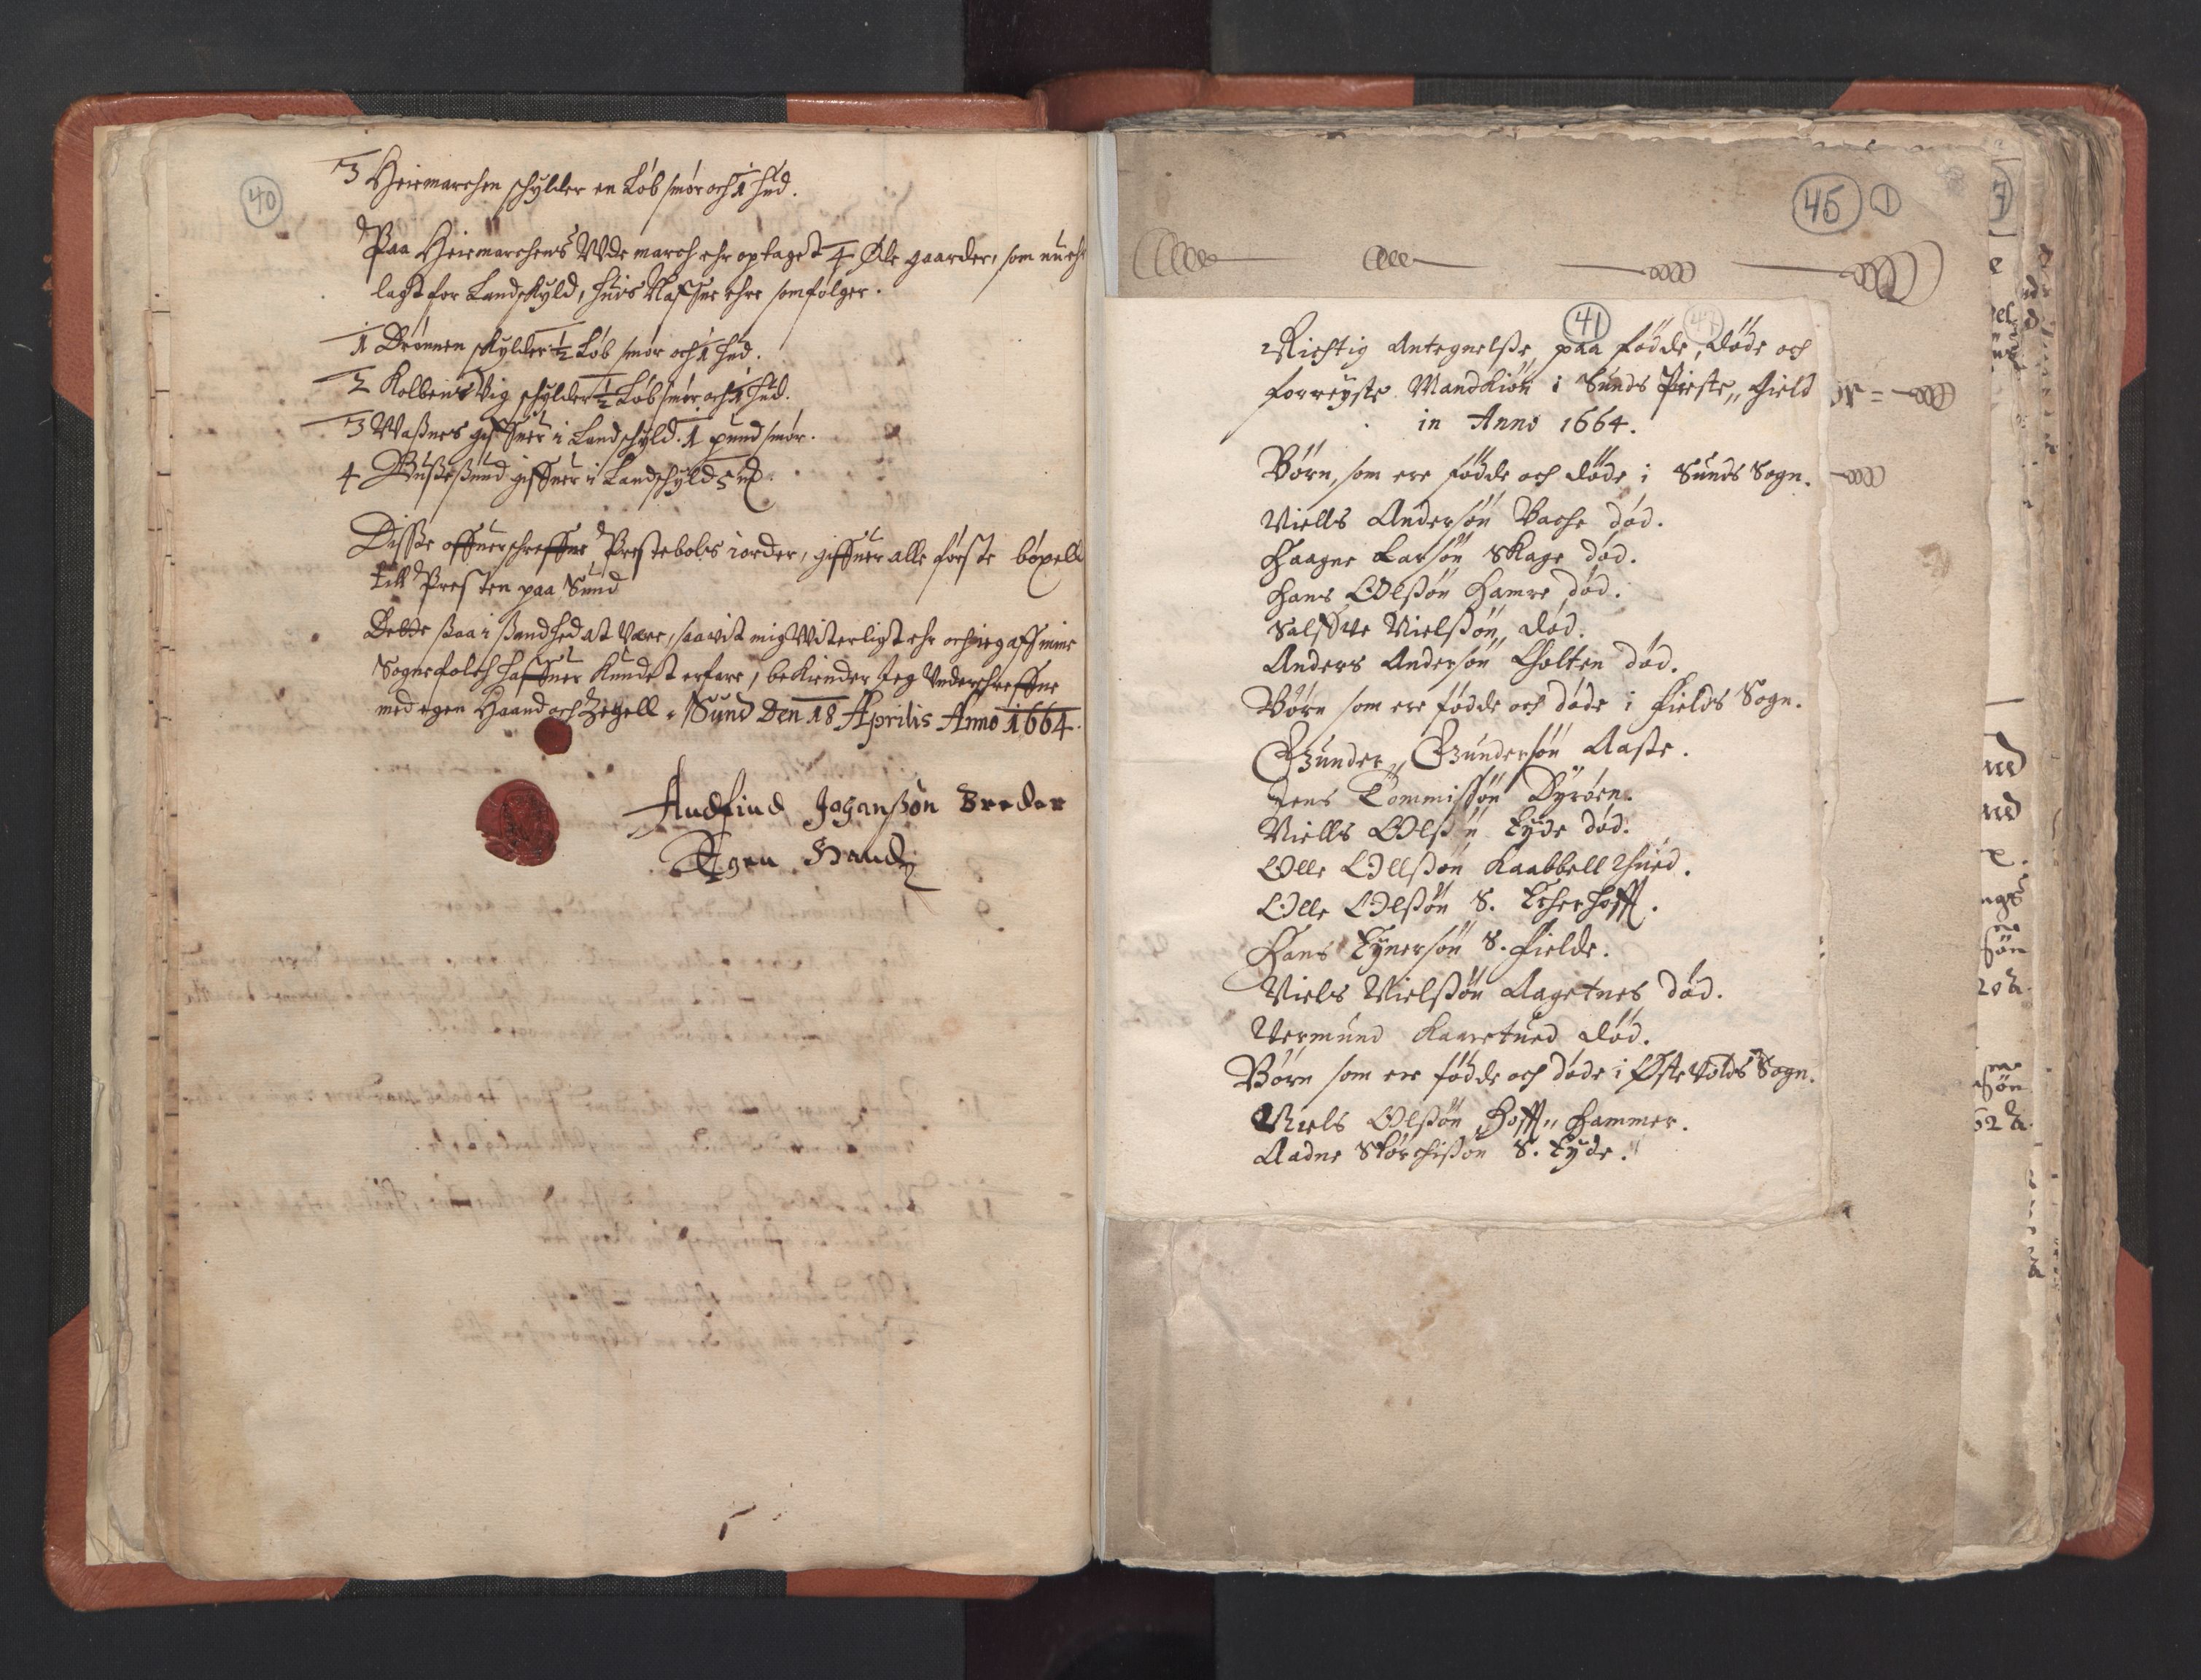 40
3 Heiemarchen schylder en Løb smør och 1 hud.
Paa Heiemarchens Vde march ehr optaget 4 Øde gaarder, som nu ehr
lagt for Landskyld, huis Naffne ehre som følger.
1 Drønnen skylder ½ Løb smør och 1 hud.
2 Kolbens Vig schylder ½ Løb smør och 1 hud.
3 Waßnes giffuer i Landschyld. 1 pund smør.
4 Bußeßund giffuer i Landschyld 5
Disse offuerschreffne Prestebols iorder, giffuer alle første bøxell
till Presten paa Sund
Dette saa i Sandhed at Være, saa vit mig Witerligt ehr och ieg aff mine
Sognefolch haffuer Kundet erfare, bekiender Jeg Vnderschreffne
med egen Haand och Zegell. Sund Den 18 Aprilis Anno 1664.
Audfind Johanßøn Breder
Egen Haand
45 1
41
Richtig Antegnelße paa fødde, døde och
forreyste Mandkiøn i Sunds Preste,, Gield
in Anno 1664.
Børn, som ere fødde och døde i Sunds Sogn.
Niells Andersøn Bache død.
Haagne Larsøn Skage død.
Hans Olßøn Hamre død.
Nielßøn død.
Anders Andersøn Tholten død.
Børn som ere fødde och døde i Fields Sogn.
Gunder,, Gundersøn Aaste.
Jens Tommissøn Dyrøen.
Niells Olßøn Eyde død.
Olle Ollßøn Kaabbell
Olle Olßøn S. Echerhoff.
Hans Eynersøn S. Fielde.
Niels Nielßøn Aagetnes død.
Vermund Kaaretued død.
Børn som ere fødde och døde i Østevolds Sogn.
Niels Olßøn Hoff,, Hammer.
Aadne Størchißøn S. Eyde.